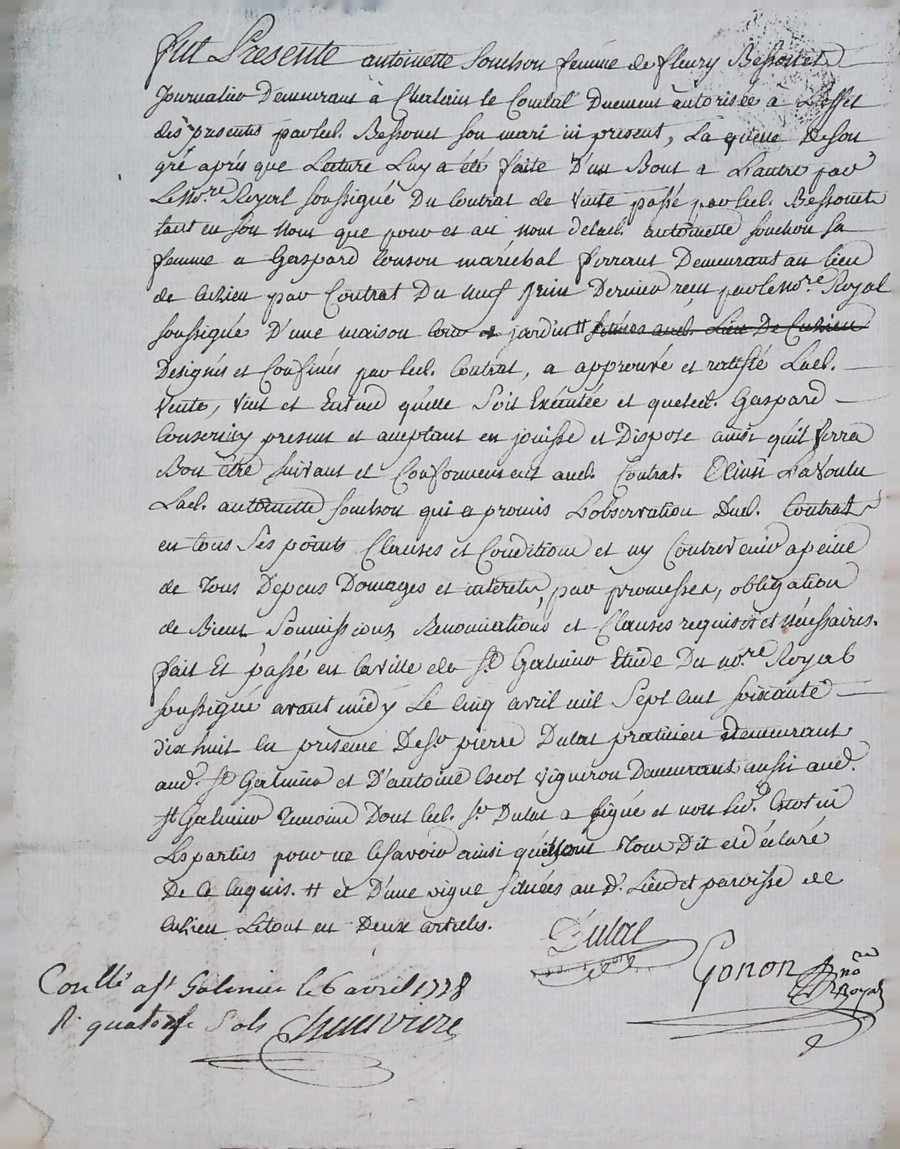 fut Presente antoinette Souchon femme de fleury Bessonet
Journalier Demeurant à Chalain le Comtal Duement autorisée a L'effet
des presentes par led. Bessonet son mari ici present, La quelle De son
gré après que Lecture Luy a été faite D'un Bout a L'autre par
Le nore. Royal soussigné Du Contrat de Vente passé par led. Bessonet
tant en son nom que pour et au nom de lad. antoinette souchon sa
femme a Gaspard Couson maréchal ferrant Demeurant au lieu
de Cuzieu par Contrat Du neuf Juin Dernier recu par le nore. Royal
soussigné D'une maison Cour et jardin # situées aud. Lieu De Cuzieu
Designés et Confinés par led. Contrat, a approuvé et ratifié Lad.
Vente, Veut et Entend qu'elle Soit Exécutée et que led. Gaspard
Couson icy present et acceptant en jouisse et Dispose ainsi qu'il ferra
Bon être suivant et Conformement aud. Contrat. Ainsi L'a Voulu
Lad. antoinette souchon qui a promis L'observation Dud. Contrat
en tous Ses points Clauses et Conditions et ny Contrevenir a peine
de Tous Depens Domages et interets, par promesses, obligation
de Biens Soumissions, Renonciations et Clauses requises et nécessaires.
fait Et passé en la ville de St. Galmier Etude Du nore. Royal
soussigné avant midy Le Cinq avril mil Sept cent soixante
dix huit En presence De Sr. pierre Dulac praticien demeurant
aud. St. Galmier et D'antoine Escot Vigneron Demeurant aussi aud.
St. Galmier Temoins Dont led. Sr. Dulac a signé et non led. Escot ni
Les parties pour ne le savoir ainsi qu'ils ont Tous Dit et déclaré
De Ce Enquis. # et D'une vigne situées aud. Lieu et paroisse de
Cuzieu Le tout en Deux articles.
Dulac
Gonon no re Royal
Conllé a St Galmier le 6 avril 1778
R. quatorze Sols Chauvire